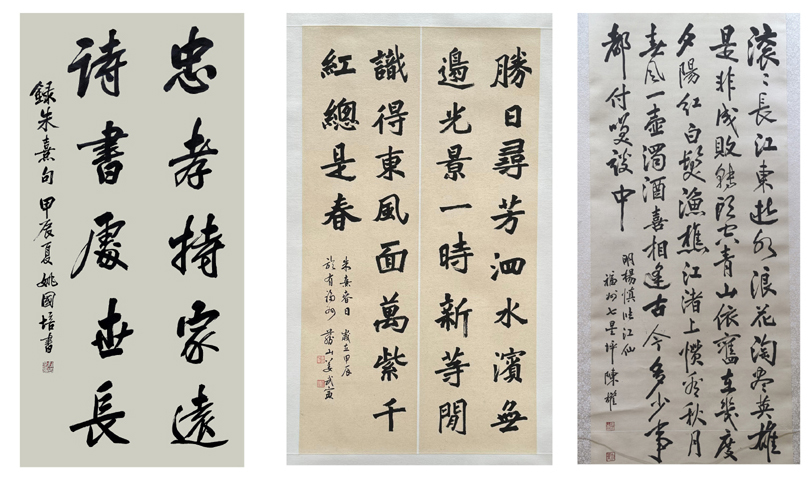 忠孝持家遠
詩書處世長
錄朱熹句甲辰夏姚國培書
勝日尋芳泗水濱無
邊光景一時新等閒
識得東風面萬紫千
紅總是春
朱熹春日 歲在甲辰
於有福州
滾〻長江東逝水浪花淘盡英雄
是非成敗轉頭空青山依舊在幾度
夕陽紅白髮漁樵江渚上慣看秋月
春風一壺濁酒喜相逢古今多少事
都付笑談中
明楊慎臨江仙
福州七星坪陳耀